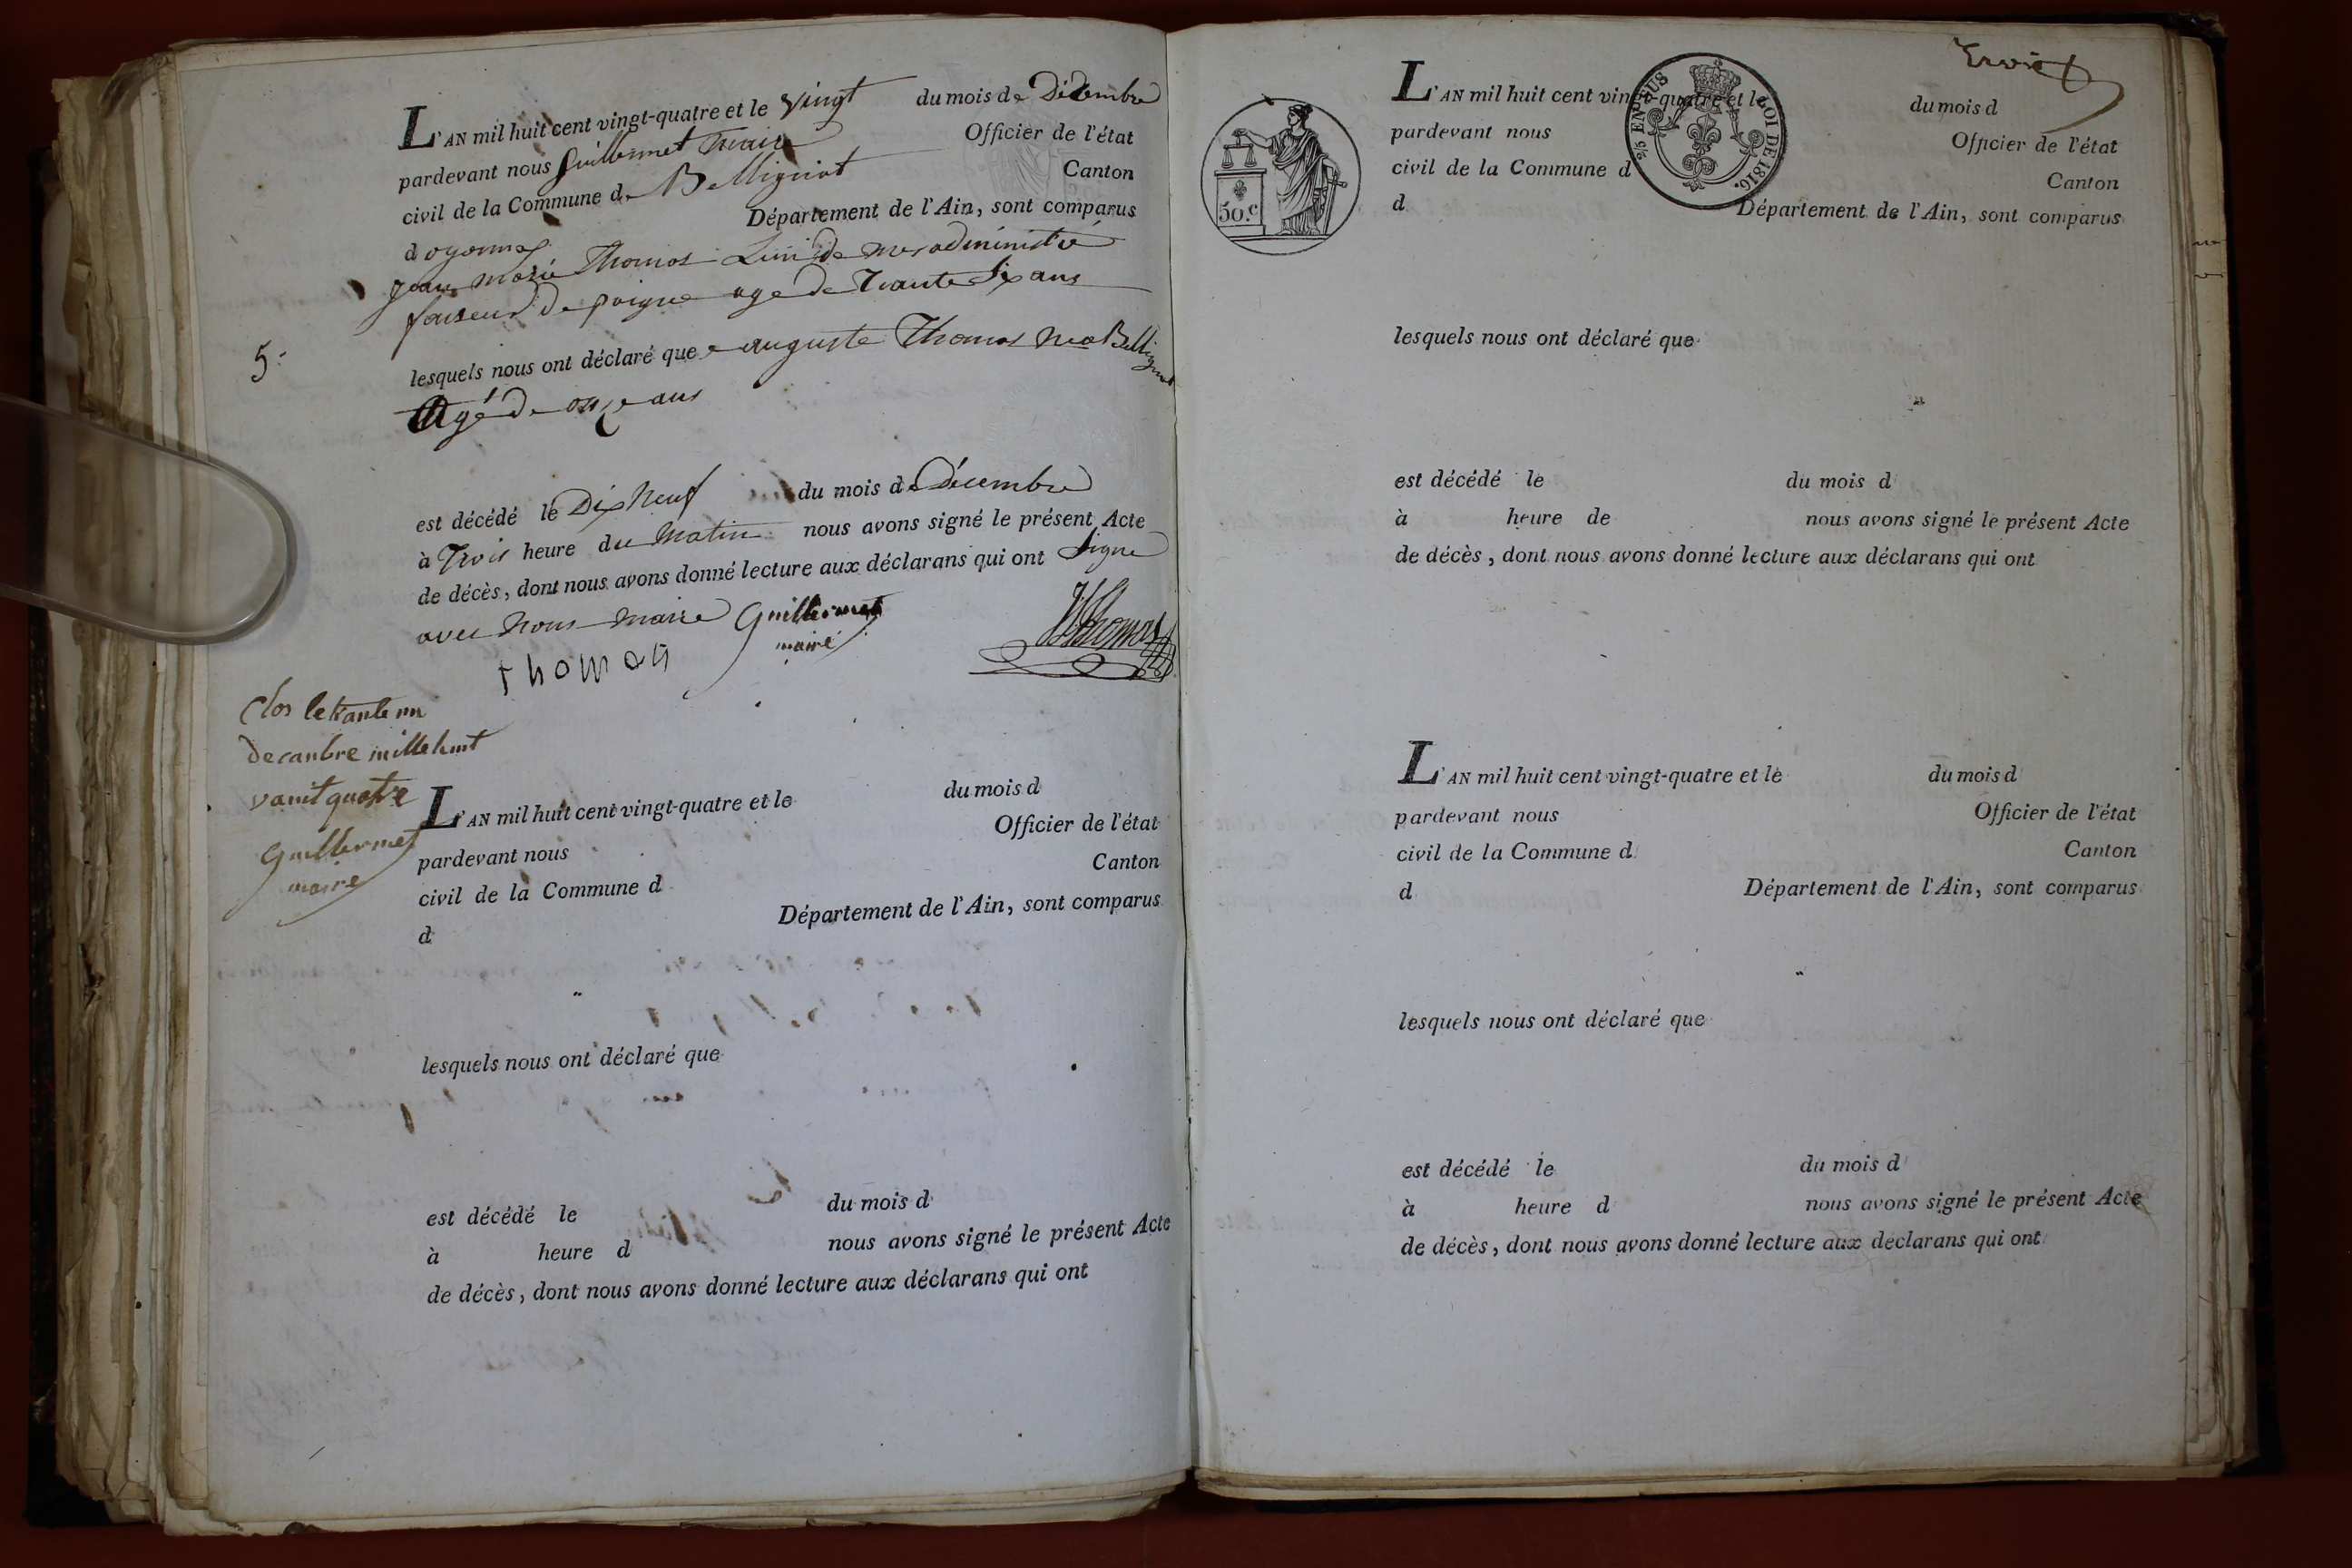 L'AN mil huit cent vingt-quatre et le vingt du mois de Décembre
pardevant nous Guillermet Maire Officier de l'état
civil de la Commune de Bellignat Canton
doyonnax Département de l'Ain, sont comparus
jean marie Thomas L'un de mes administré
faiseur de peigne age de Trante Six ans
5.
lesquels nous ont déclaré que auguste Thomas né a Bellignat
Agé de onze ans
est décédé le Dix Neuf du mois de Décembre
à Trois heure du Matin nous avons signé le présent Acte
de décès, dont nous avons donné lecture aux déclarans qui ont Signé
avec Nous maire Guillermet
maire
Thomas
thomas
Clos le trante un
decanbre mille huit
vanit quatre
Guillermet
maire
L'AN mil huit cent vingt-quatre et le du mois d
pardevant nous Officier de l'état
civil de la Commune d Canton
d Département de l'Ain, sont comparus
lesquels nous ont déclaré que
est décédé le du mois d
à heure d nous avons signé le présent Acte
de décès, dont nous avons donné lecture aux déclarans qui ont
L'AN mil huit cent vingt-quatre et le du mois d
pardevant nous Officier de l'état
civil de la Commune d Canton
d Département de l'Ain, sont comparus
50.c
EN SUS
LOI DE 1816.
lesquels nous ont déclaré que
est décédé le du mois d
à heure de nous avons signé le présent Acte
de décès, dont nous avons donné lecture aux déclarans qui ont
L'AN mil huit cent vingt-quatre et le du mois d
pardevant nous Officier de l'état
civil de la Commune d Canton
d Département de l'Ain, sont comparus
lesquels nous ont déclaré que
est décédé le du mois d
à heure d nous avons signé le présent Acte
de décès, dont nous avons donné lecture aux déclarans qui ont